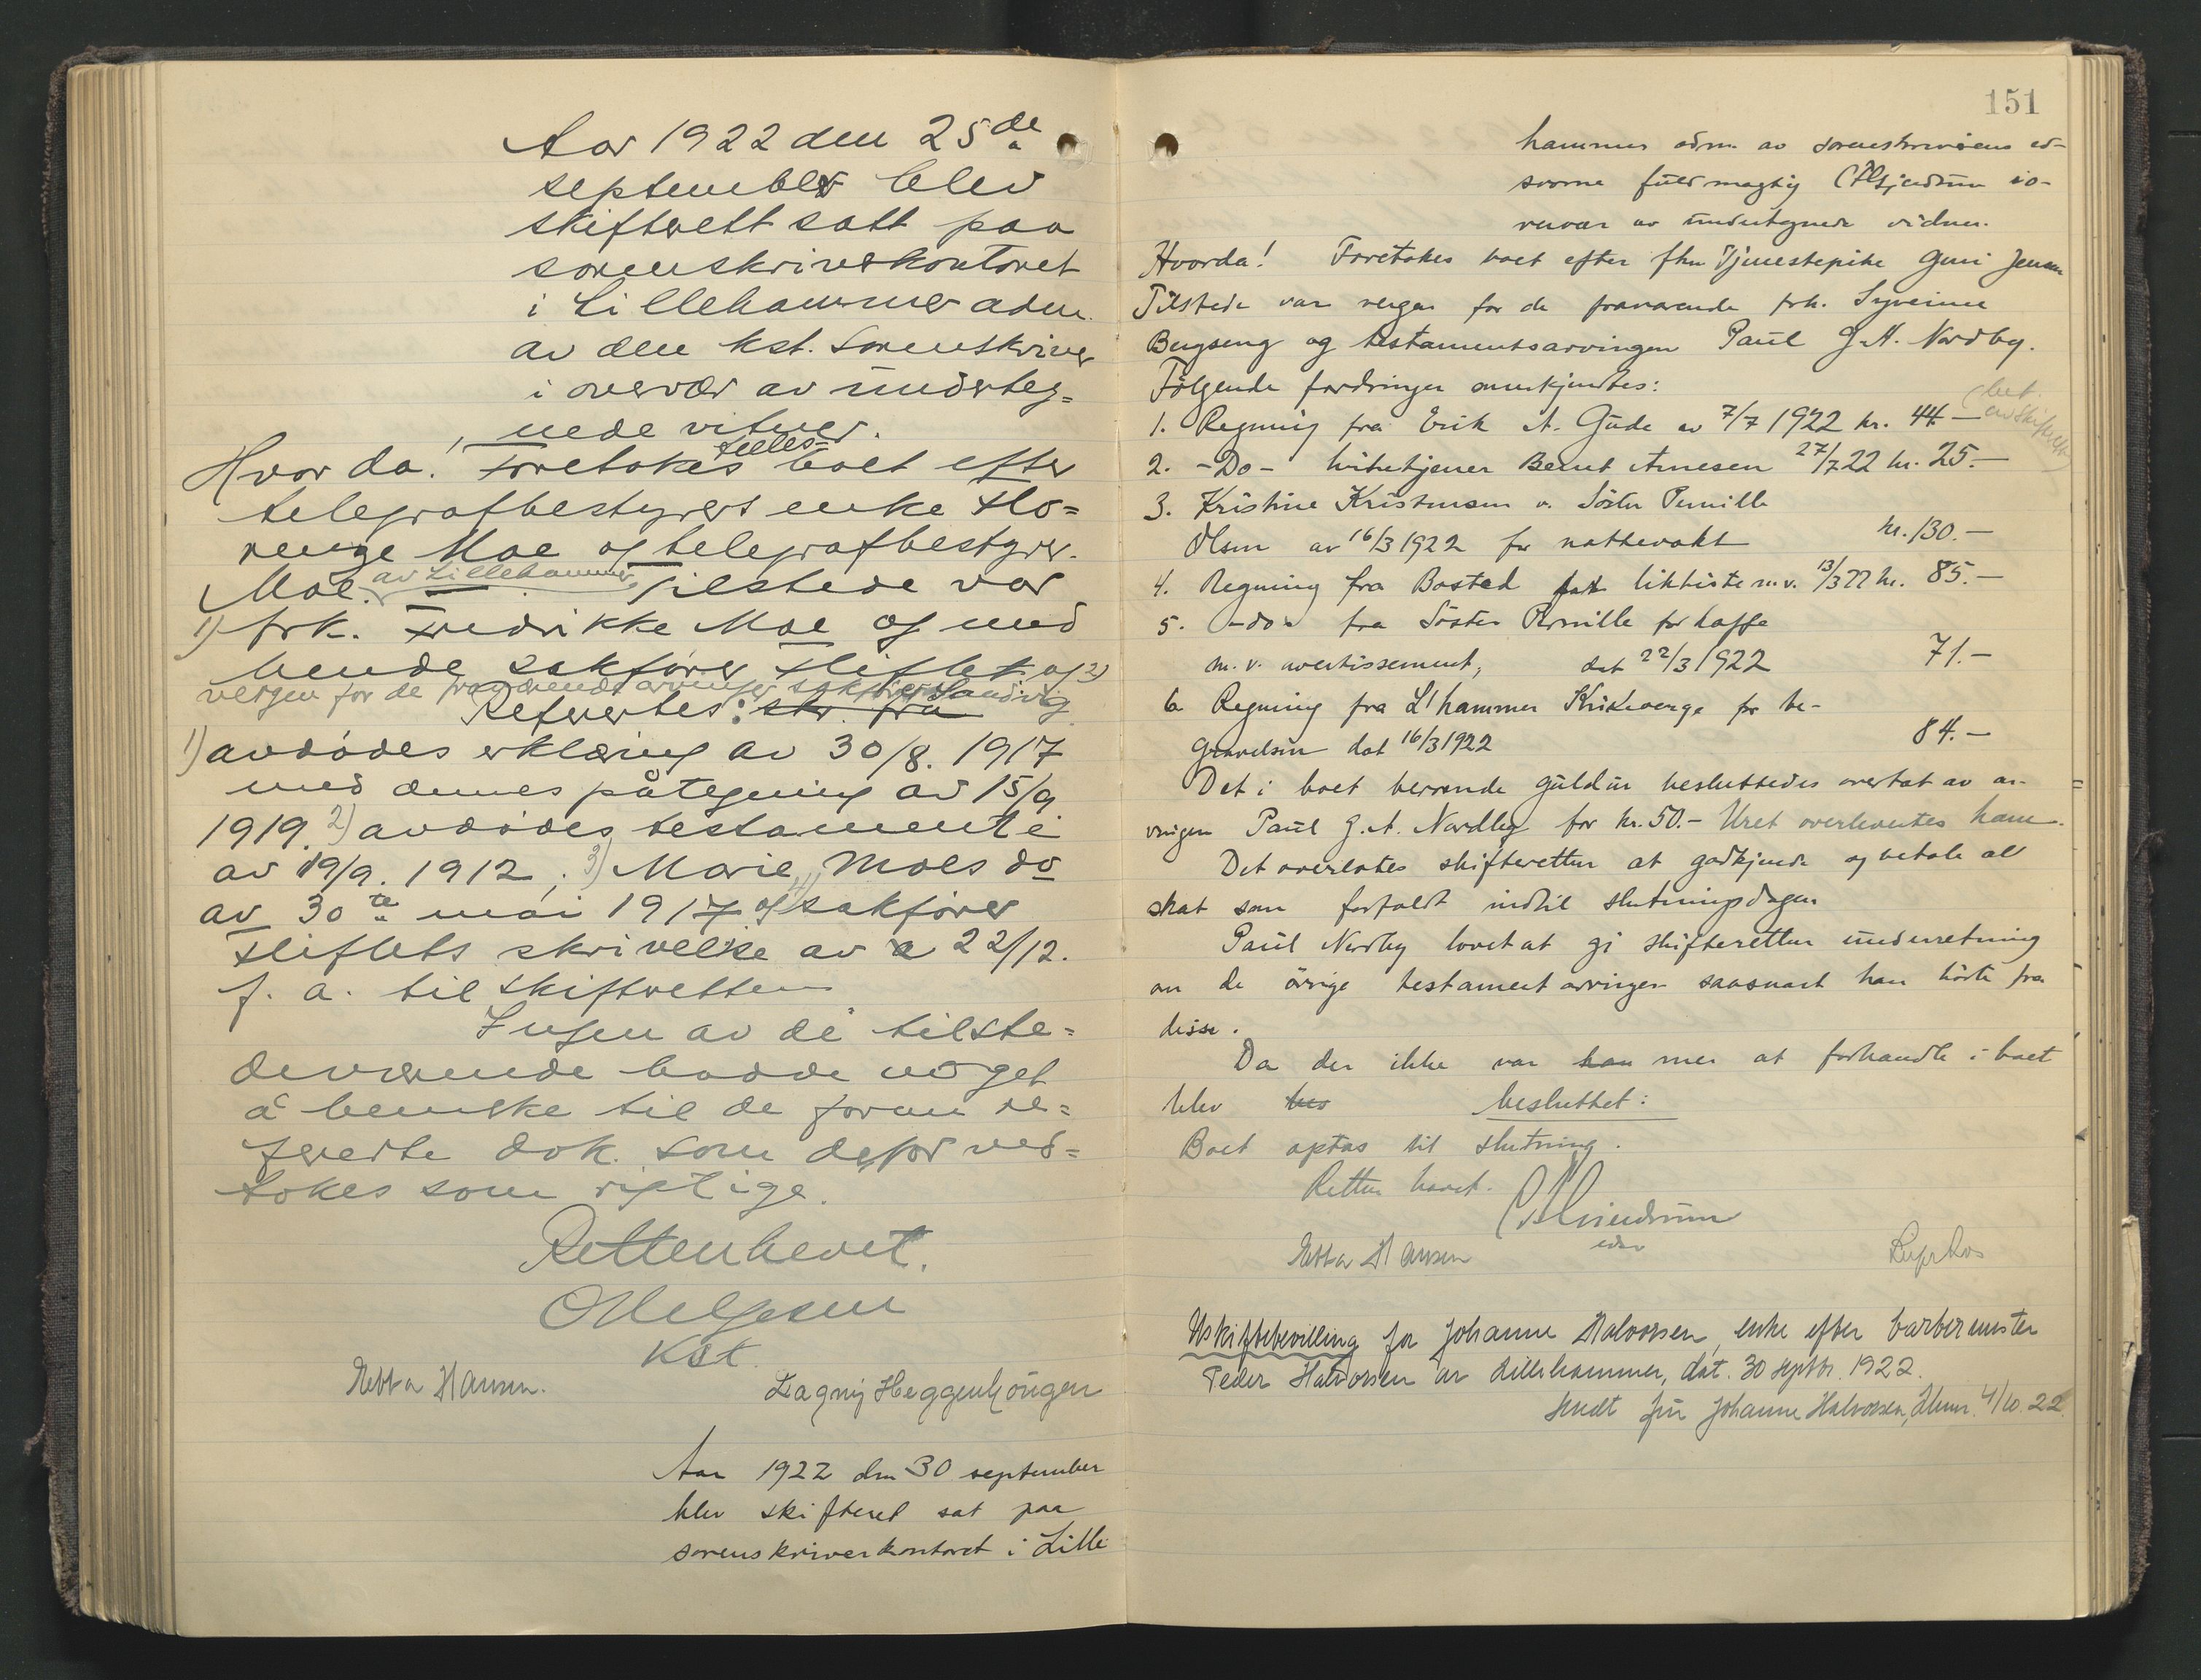 Aar 1922 den 25de
september blev
skifterett satt paa
sorenskriverkontoret
i Lillehammer adm.
av den kst. sorenskriver
i overvær av underteg=
nede vitner.
Hvorda! Foretokes fælles= boet efter
telegrafbestyrers enke
Moe og telegrafbestyrer
Moe. av Lillehammer Tilstede var
1) frk. Fredrikke Moe og med
hende sakfører Hiflet og 2)
vergen for de fraværende arvinger sakfører Sandvig
Refereertes: skr. fra
1) avdødes erklæring av 30/8. 1917
med dennes påtegning av 15/9
1919. 2) avdødes testamente
av 19/9. 1912; 3) Marie Moes do
av 30te mai 1917 og 4) sakfører
Hiflets skrivelse av 22/12.
f. a. til skifteretten
Ingen av de tilste=
deværende hadde noget
å bemerke til de foran re=
fererte dok. som derfor ved=
tokes som riktige.
Retten hevet.
O Helgesen
Kst.
Ebba Hansen. Dagny Heggenhougen
Aar 1922 den 30 september
blev skifteret sat paa
sorenskriverkontoret i Lille
151
hammer adm. av sorenskriverens ed-
svorne fuldmægtig i o-
vervær av undertegnede vidner.
Hvorda! Foretokes boet efter fhv. Tjenestepike Guri Jensen
Tilstede var vergen for de fraværende frk. Syverine
Bergseng og testamentsarvingen Paul G. A. Nordby.
Følgende fordringer anerkjendtes:
1. Regning fra Erik A. Gude av 7/7 1922 kr. 44.- (bet. av skifteret)
2. -Do- kirketjener Bernt Arnesen 27/7 22 kr. 25.-
3. Kristine Kristensen v. Søster Pernille
Olsen av 16/3 1922 for nattevakt kr. 130.-
4. Regning fra Bosted for likkiste m.v. 13/3 22 kr. 85.-
5. -do- fra Søster Pernille for kaffe
m. v. avertissement, dat 22/3 1922 71.-
6 Regning fra L'hammer Kirkeverge for be-
gravelsen dat 16/3 1922 84.-
Det i boet beroende guldur besluttedes overtat av ar-
vingen Paul G. A. Nordby for kr. 50.- Uret overleveertes ham.
Det overlotes skifteretten at godkjende og betale al
skat som forfaldt indtil slutningsdagen
Paul Nordby lovet at gi skifteretten underretning
om de øvrige testament arvinger saasnart han hørte fra
disse.
Da der ikke var mer at forhandle i boet
blev bes besluttet:
Boet optas til slutning.
Retten hevet.
edsv
Ebba Hansen
Uskiftebevilling for Johanne Halvorsen, enke efter barbermester
Peder Halvorsen av Lillehammer, dat. 30 septbr. 1922.
Sendt fru Johanne Halvorsen, Lhmr. 4/10. 22.